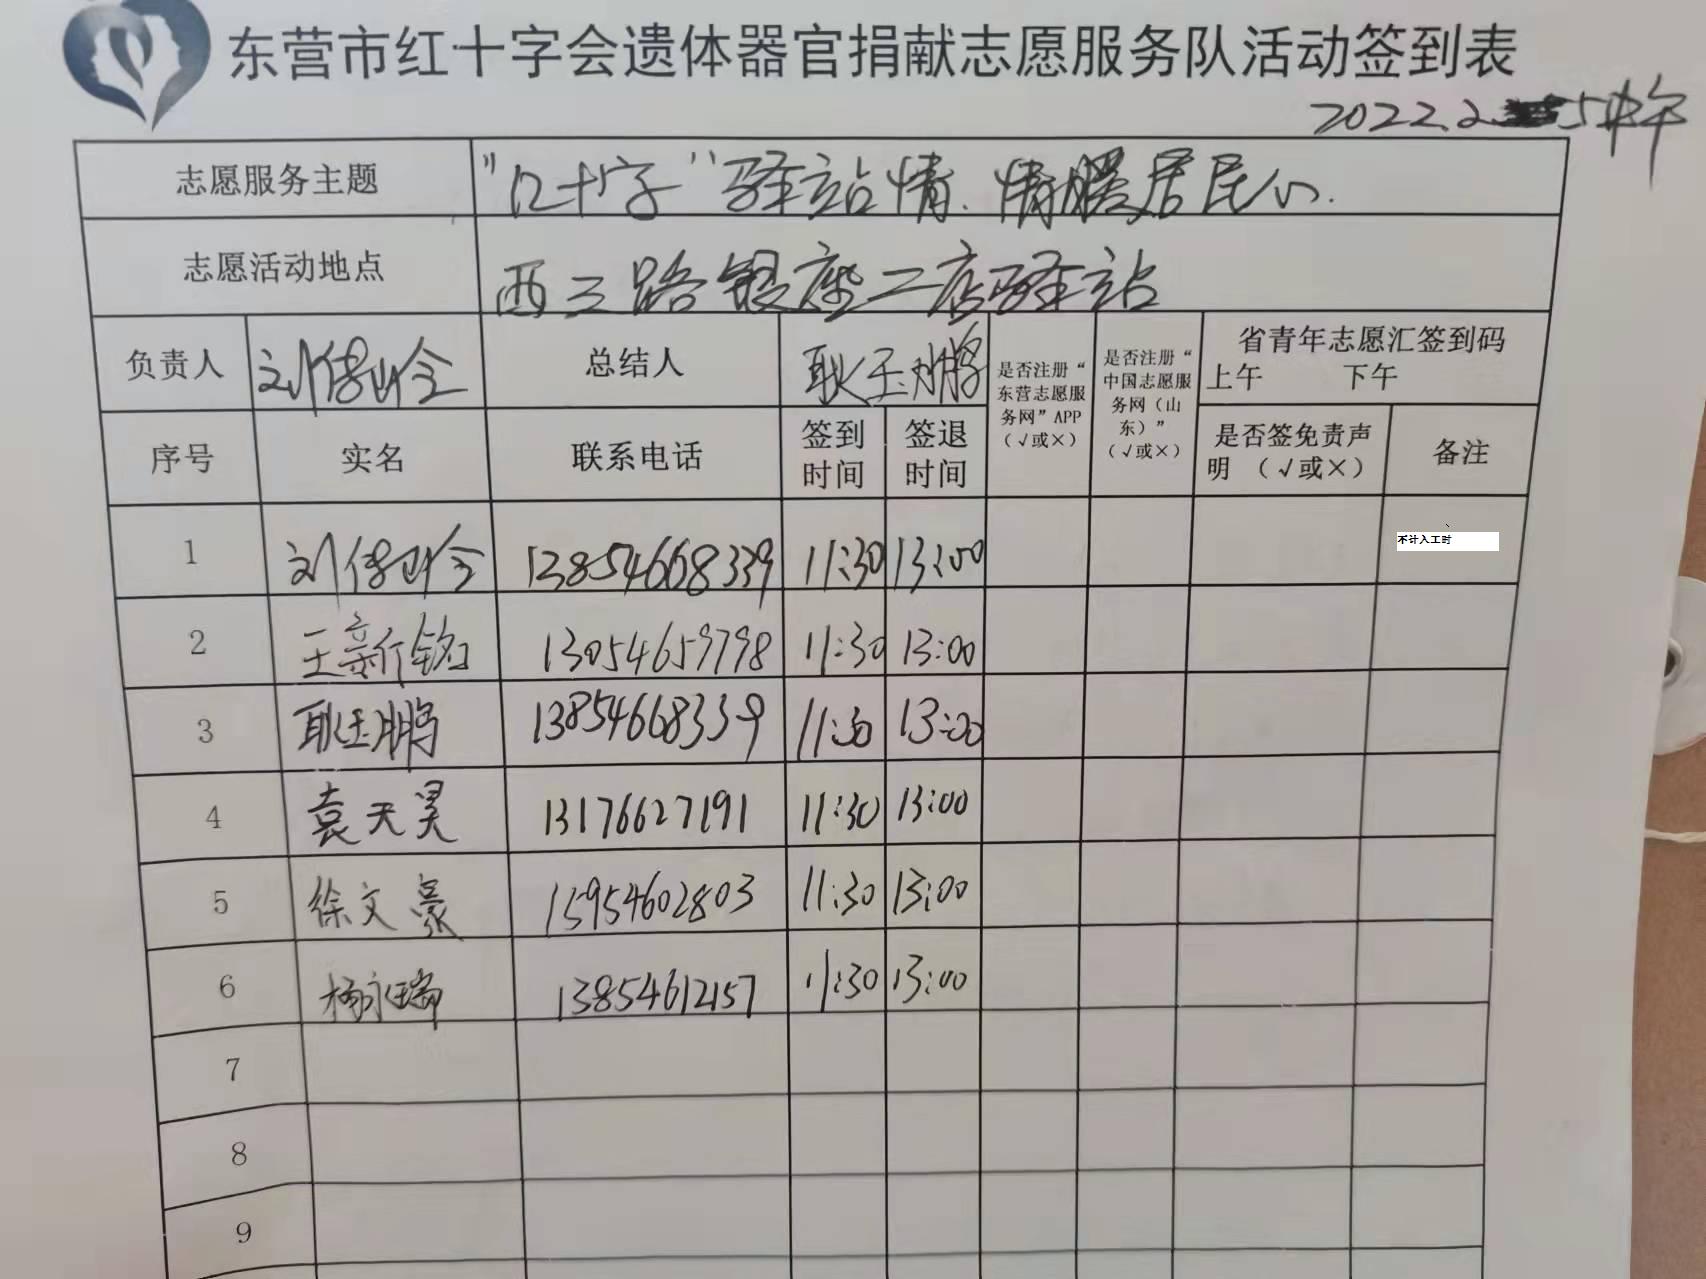 东营市红十字会遗体器官捐献志愿服务队活动签到表
2022.2 5中午
志愿服务主题 "红十字"驿站情、情暖居民心.
志愿活动地点 西三路银座二店驿站
负责人 刘 总结人 耿玉鹏 是否注册“东营志愿服务网”APP（√或×） 是否注册“中国志愿服务网（山东）”（√或×） 省青年志愿汇签到码 上午 下午
序号 实名 联系电话 签到时间 签退时间 是否签免责声明 （√或×） 备注
1 刘 13854668339 11:30 13:00 不计入工时
2 王新铭 13054659798 11:30 13:00
3 耿玉鹏 13854668339 11:30 13:00
4 袁天昊 13176627191 11:30 13:00
5 徐文豪 15954602803 11:30 13:00
6 杨永瑞 13854612157 11:30 13:00
7
8
9